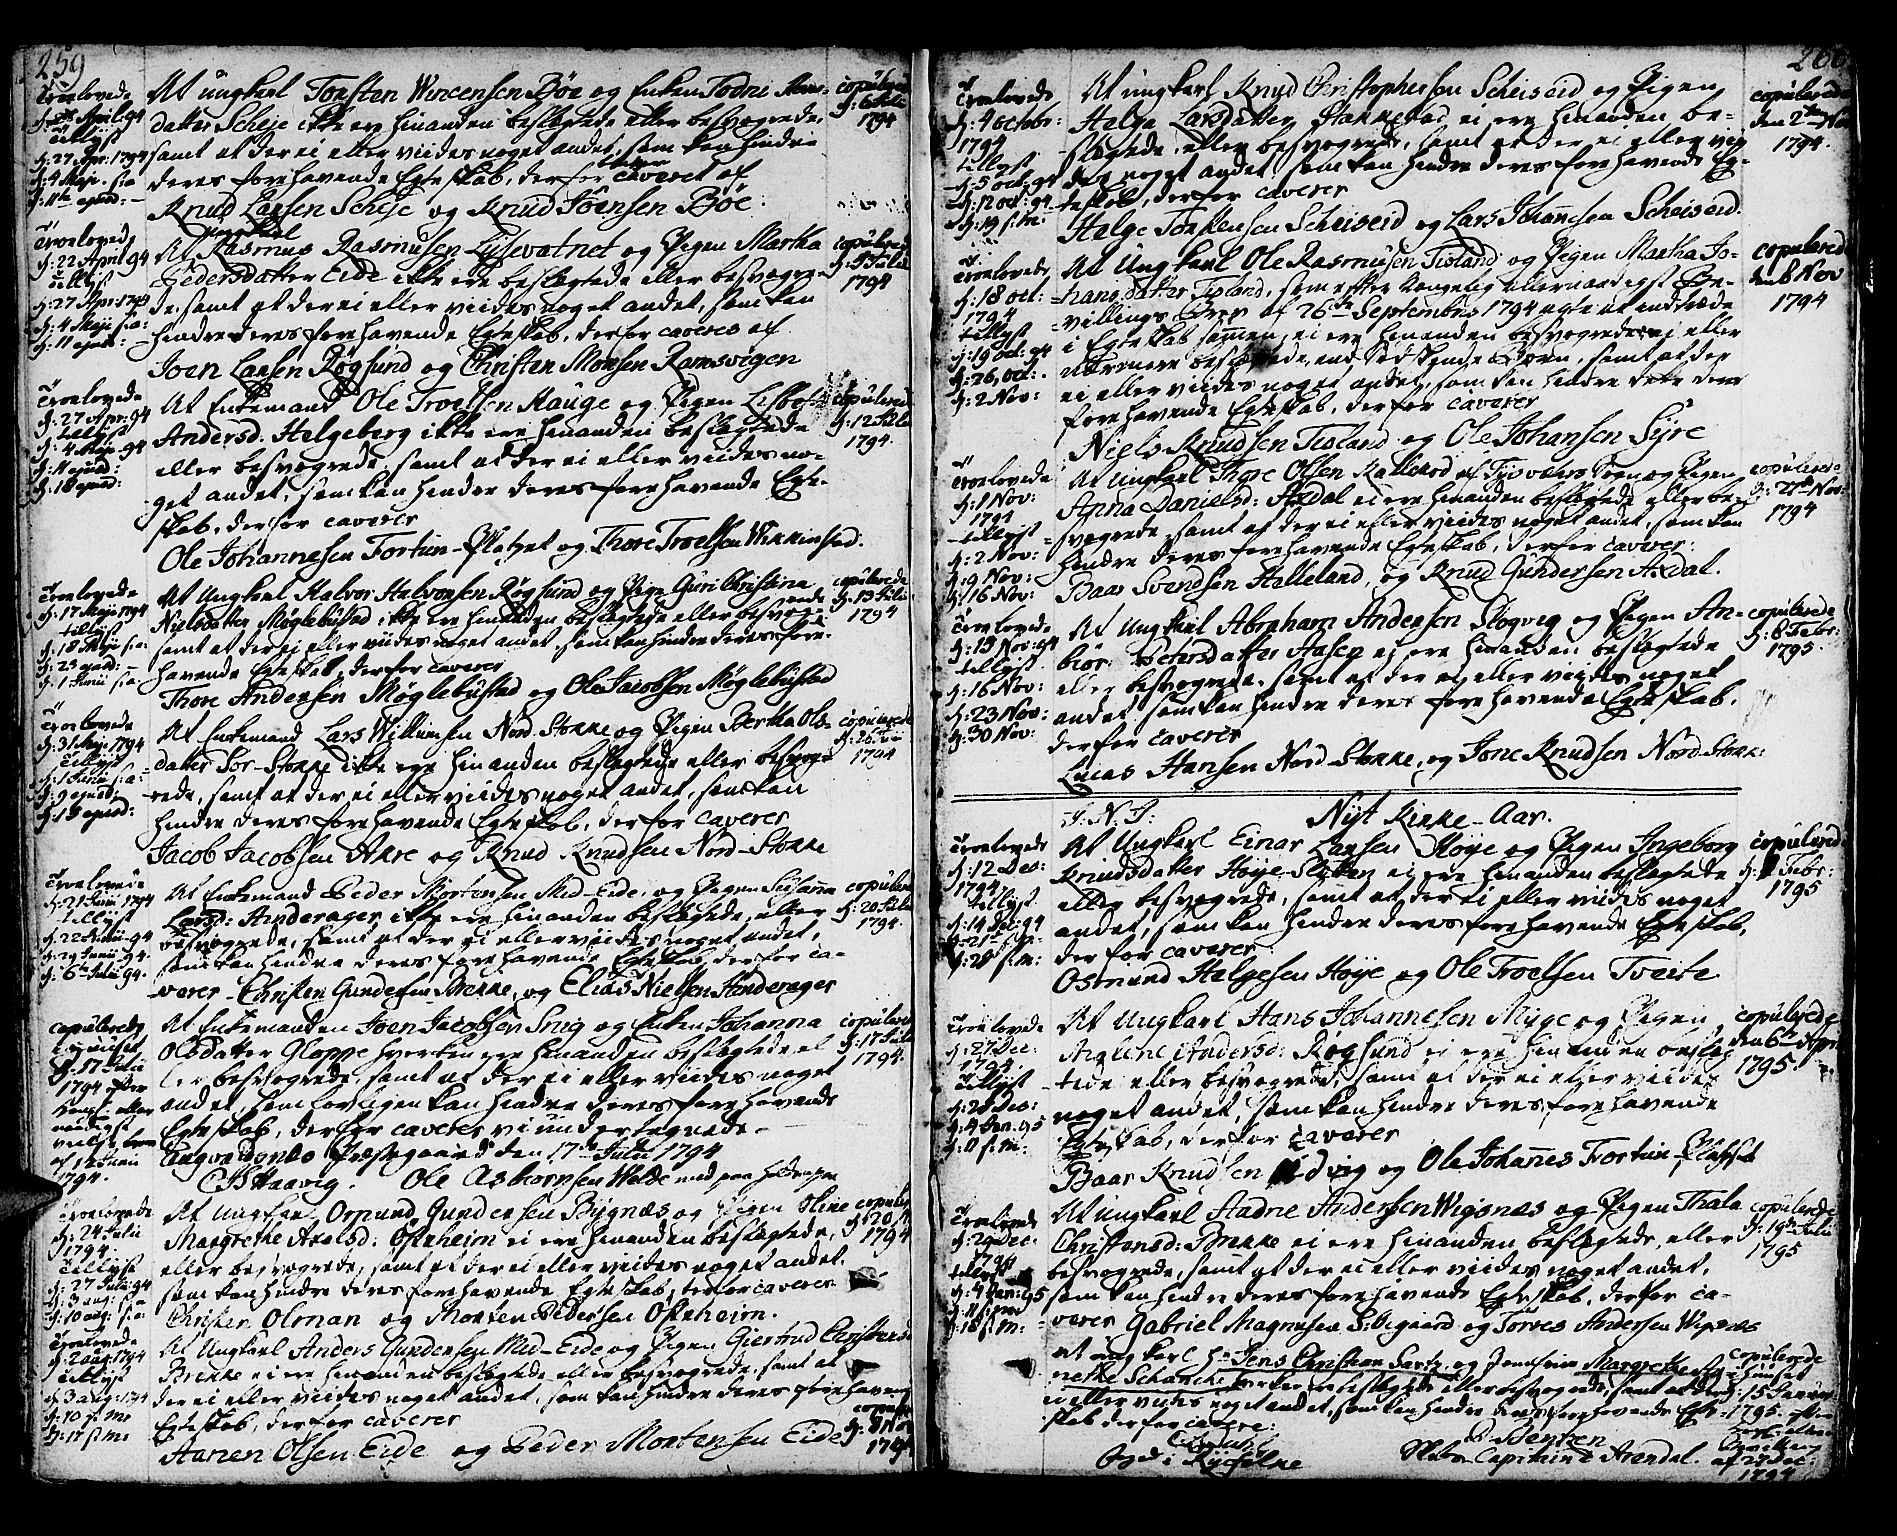 259
Troelovede
d: 5te April 94
tillyst
d: 27 Apr: 1794
d: 4 Maji s: a:
d: 11te ejusd:
At ungkarl Torsten Wincensen Bøe og Enken Todne Aans-
datter Scheje ikke ere hinanden beslegtede eller besvogrede,
samt at der ei eller viides noget andet, som kan hindre
deres forehavende Egteskab, derfor caveret af
Knud Larsen Scheje og Knud Joensen Bøe.
copulerede
d: 6 Julii
1794
Troelovede
d: 22 April 94
tillyst
d: 27 Apr: 1794
d: 4 Maji s: a:
d: 11 ejusd:
ungkarl
At Rasmus Rasmusen Lysevatnet og Pigen Martha
Pedersdatter Eide ikke ere beslegtede eller besvogre-
de, samt at der ei eller viides noget andet, som kan
hindre deres forehavende Egteskab, derfor caveres af
Joen Larsen Røgsund og Christen Monsen Ramsvigen
copulerede
1794
Troelovede
d: 27 Apr: 94
tillyst
d: 4 Maji 94
d: 11 ejusd:
d: 18 ejusd:
At Enkemand Ole Troelsen Hauge og Pigen Lisbet
Andersd: Helgeberg ikke ere hinanden beslegtede
eller besvogrede, samt at der ei eller viides no-
get andet, som kan hindre deres forehavende Egte-
skab, derfor caverer
Ole Johannesen Fortun-Platzet og Thore Troelsen Wikkinstad.
copulerede
d: 12 Julii
1794
Troelovede
d: 17 Maji 1794
tillyst
d: 18 Maji s: a:
d: 25 ejusd:
d: 1 Junii s: a:
At Ungkarl Halvor Halvorsen Røgsund og Pigen Guri Christina
Nielsdatter Møglebustad ikke ere hinanden beslegtede eller besvog-
rede
samt at der ei eller viides noget andet som kan hindre deres fore-
havende Egteskab, derfor caverer
Thore Andersen Møglebustad og Ole Jacobsen Møglebustad
copulerede
d: 13 Julii
1794
Troelovede
d: 31 Maji 1794
tillyst
d: 1 Junii s: a:
d: 9 ejusd:
d: 15 ejusd:
At Enkemand Lars Willumsen Nord-Stokke og Pigen Bertha Ols-
datter Sør-Stokke ikke ere hinanden beslegtede eller besvog-
rede, samt at der ei eller viides noget andet, som kan
hindre deres forehavende Egteskab, derfor caverer
Jacob Jacobsen Akre og Knud Knudsen Nord-Stokke
copulerede
1794
Troelovede
d: 21 Junii 1794
tillyst
d: 22 Junii 94
d: 29 Junii 94
d: 6te Julii 94.
At Enkemand Peder Mortensen Med-Eide og Pigen Susanna
Larsd: Anderager ikke ere hinanden beslegtede, eller
besvogrede, samt at der ei eller viides noget andet,
som kan hindre deres forehavende Egteskab, derfor ca-
verer Christen Gundersen Brekke, og Elias Nielsen Anderager
copulerede
d: 20 Julii
1794.
copulerede
i Huuset
d: 17 Julii
1794 efter
Kongl: aller-
naadigst
af 12 Junii
1794.
At Enkemanden Joen Jacobsen Snig og Enken Johanna
Olsdatter Gloppe hverken ere hinanden beslegtede el-
ler besvogrede, samt at der ei eller viides noget
andet, som lovligen kan hindre deres forehavende
Egteskab, derfor caverer vi undertegnede
Augvaldsnes Prestegaard den 17de Julii 1794
Haavig. Ole Asbiørnsen Welde med paaholden pen
copulerede
d: 17 Julii
1794
Troelovede
d: 24 Julii
1794
tillyst
d: 27 Julii 94
d: 3 aug: s: a
d: 10 aug: s: a:
At Ungkarl Osmund Gundersen Bygnæs og Pigen Oline
Margrethe Axelsd: Østenheim ei ere hinanden beslegtede,
eller besvogrede, samt at der ei eller viides noget andet,
som kan hindre deres forehavende Egteskab, derfor caverer
Christen Olman og Morten Pedersen Østenheim.
1794
Troelovede
d: 2 aug: 1794
tillyst
d: 3 aug: 1794
d: 10 s: m:
d: 17 s: m:
At Ungkarl Anders Gundersen Med-Eide og Pigen Giertrud Christensd:
Brekke ei ere hinanden beslegtede eller besvogrede, samt at
der ei eller viides noget andet, som kan hindre deres forehavende
Egteskab, derfor caverer
Aanen Olsen Eide og Peder Mortensen Eide
d: 8 Nov:
1794
260
Troelovede
d: 4 octobr:
1794
tillyst
d: 5 oct: 94
d: 12 oct: 94
d: 19 s: m:
At ungkarl Knud Christophersen Scheiseid og Pigen
Helge Larsdatter Stakkestad ei ere hinanden be-
slegtede, eller besvogrede, samt at der ei eller vii-
des noget andet, som kan hindre deres forehavende Eg-
teskab, derfor caverer
Helge Torkelsen Scheiseid og Lars Johansen Scheiseid.
copulerede
den 2den Nov:
1794.
Troelovede
d: 18 oct:
1794
tillyst
d: 19 oct: 94
d: 26 oct:
d: 2 Nov:
At Ungkarl Ole Rasmusen Tiosland og Pigen Martha Jo-
hansdatter Tiosland, som efter Kongelig allernaadigst Be-
villings Brev af 26de Septembris 1794 agte at indtræde
i Egteskab sammen, ei ere hinanden besvogrede ei eller
nærmere beslegtede, end Sødskende Børn, samt at der
ei eller viides noget andet, som kan hindre dette deres
forehavende Egteskab, derfor caverer
Niels Knudsen Tiosland og Ole Johansen Syre
copulerede
den 8 Nov
1794
Troelovede
d: 1 Nov:
1794
tillyst
d: 2 Nov:
d: 9 Nov:
d: 16 Nov:
At Ungkarl Thore Olsen Kallekod af Tysvær Sogn og Pigen
Anna Danielsd: Axdal ei ere hinanden beslegtede eller be-
svogrede, samt at der ei eller viides noget andet, som kan
hindre deres forehavende Egteskab, derfor caverer:
Baar Svendsen Helleland, og Knud Gundersen Axdal.
copulerede
1794
Troelovede
d: 15 Nov: 94
tillyst
d: 16 Nov:
d: 23 Nov:
d: 30 Nov:
At Ungkarl Abraham Andersen Slogvig og Pigen An-
biør Petersdatter Aasen ei ere hinanden beslegtede
eller besvogrede, samt at der ei eller viides noget
andet, som kan hindre deres forehavende Egteskab,
derfor caverer
Lucas Hansen Nord-Stokke, og Jone Knudsen Nord-Stokke:
copulerede
d: 8 Febr:
1795.
I. N. J: Nyt Kirke-Aar.
Troelovede
d: 12 Dec:
1794
tillyst
d: 14 Dec: 94
d: 21 s: m:
d: 28 s: m:
At Ungkarl Einar Larsen Høye og Pigen Ingeborg
Knudsdatter Høye-Sletten ei ere hinanden beslegtede
eller besvogrede, samt at der ei eller viides noget
andet, som kan hindre deres forehavende Egteskab,
derfor caverer
Osmund Helgesen Høye og Ole Troelsen Tveite
copulerede
Febr:
1795
Troelovede
d: 27 Dec:
1794
tillyst
d: 28 Dec:
d: 4 Jan: 95
d: 11 s: m:
At Ungkarl Hans Johannesen Myge og Pigen
Anglene Andersd: Røgsund ei ere hinanden besleg-
tede eller besvogrede, samt at der ei eller viides
noget andet, som kan hindre deres forehavende
Egteskab, derfor caverer
Baar Knudsen Udvig og Ole Johannes Fortun-Platzet
copulerede
den 6te Apr:
1795.
Troelovede
d: 29 Dec:
1794
tillyst
d: 4 Jan: 95
d: 11 s: m:
d: 18 s: m:
At ungkarl Aadne Andersen Wignæs og Pigen Thala
Christensd: Brekke ei ere hinanden beslegtede, eller
besvogrede, samt at der ei eller viides noget andet,
som kan hindre deres forehavende Egteskab, derfor ca-
verer Gabriel Magnusen og Torres Andersen Wignæs
copulerede
d: 19de Julii
1795
At ungkarl Hr Jens Christian Sartz og Jomfrue Margrethe Ag-
nethe Schanche hverken ere beslegtede eller besvogrede, samt at der
ei eller viides noget andet, som kan hindre deres forehavende Egte-
skab derfor cavere:
copulerede
i Huuset
d: 15 Januar
1795. efter
Bevilling
af 27 Dec:
1794
i Ryefylke
Bentzen
Capitain i Arendal.